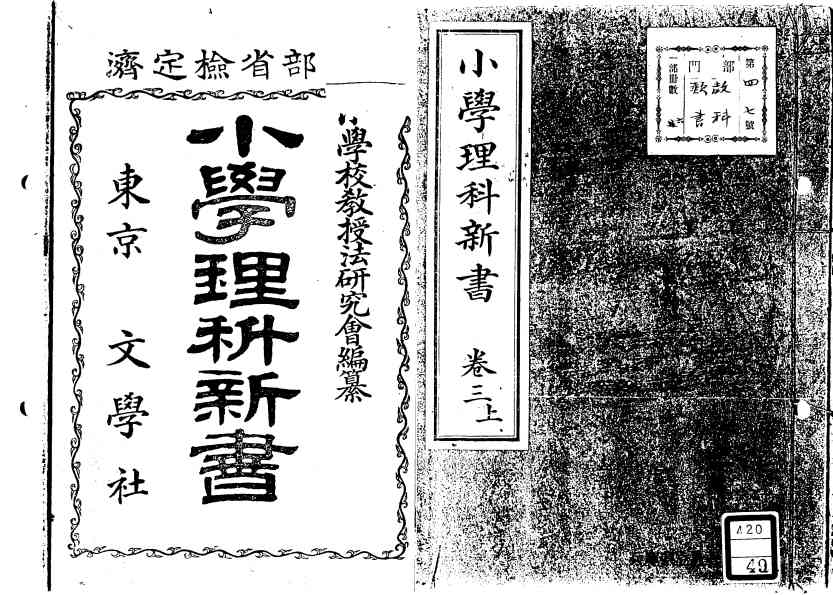 小學理科新書 卷三上
第四七號
部 教科
門 教書
部冊數
420
49
部省檢定濟
學校教授法研究會編纂
小學理科新書
東京 文學社